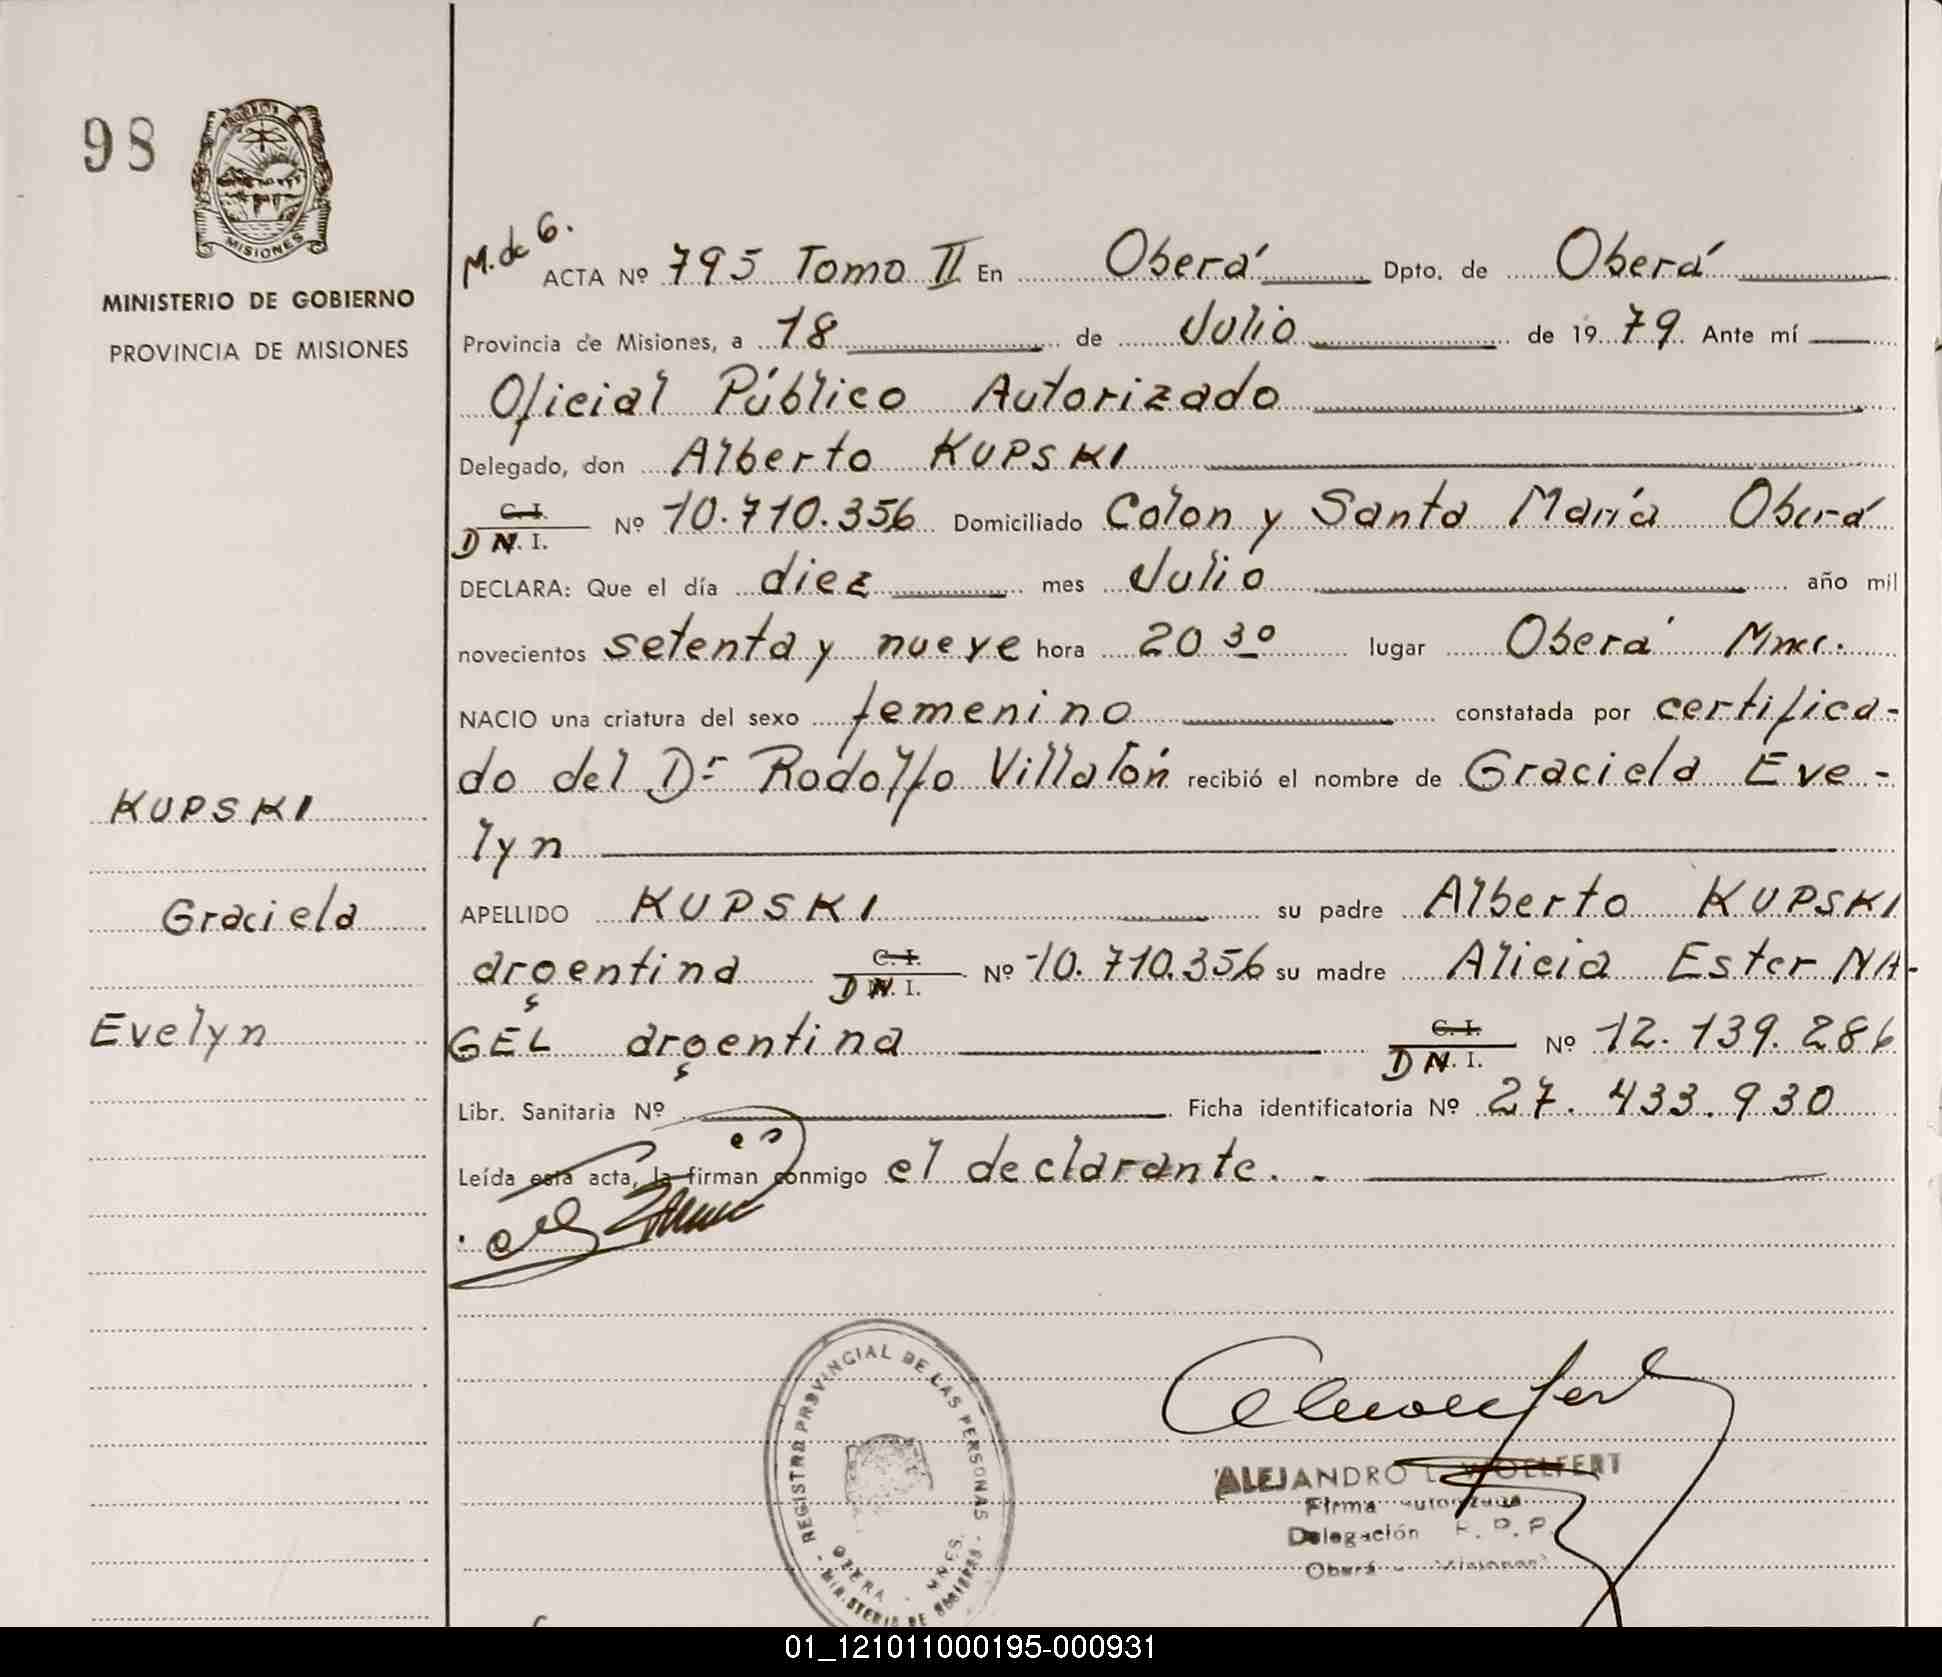 98
MISIONES
MINISTERIO DE GOBIERNO
PROVINCIA DE MISIONES
KUPSKI
Graciela
Evelyn
M. de G.
ACTA Nº 795 Tomo II En Oberá Dpto. de Oberá
Provincia de Misiones, a 18 de Julio de 1979. Ante mí
Oficial Público Autorizado
Delegado, don Alberto KUPSKI
C. I.
D N. I. Nº 10.710.356 Domiciliado Colon y Santa María Oberá
DECLARA: Que el día diez mes Julio año mil
novecientos setenta y nueve hora 20 30 lugar Oberá Mnes.
NACIO una criatura del sexo femenino constatada por certifica-
do del Dr Rodolfo Villalón recibió el nombre de Graciela Eve-
lyn
APELLIDO KUPSKI su padre Alberto KUPSKI
argentina C. I. D N. I. Nº 10.710.356 su madre Alicia Ester NA-
GEL argentina C. I. D N. I. Nº 12.139.286
Libr. Sanitaria Nº Ficha identificatoria Nº 27.433.930
Leída esta acta, la firman conmigo el declarante. -
REGISTRO PROVINCIAL DE LAS PERSONAS
OBERA - MNES.
MINISTERIO DE GOBIERNO
ALEJANDRO L. WOELFERT
Firma autorizada
Delegación R. P. P.
Oberá - Misiones
01_121011000195-000931